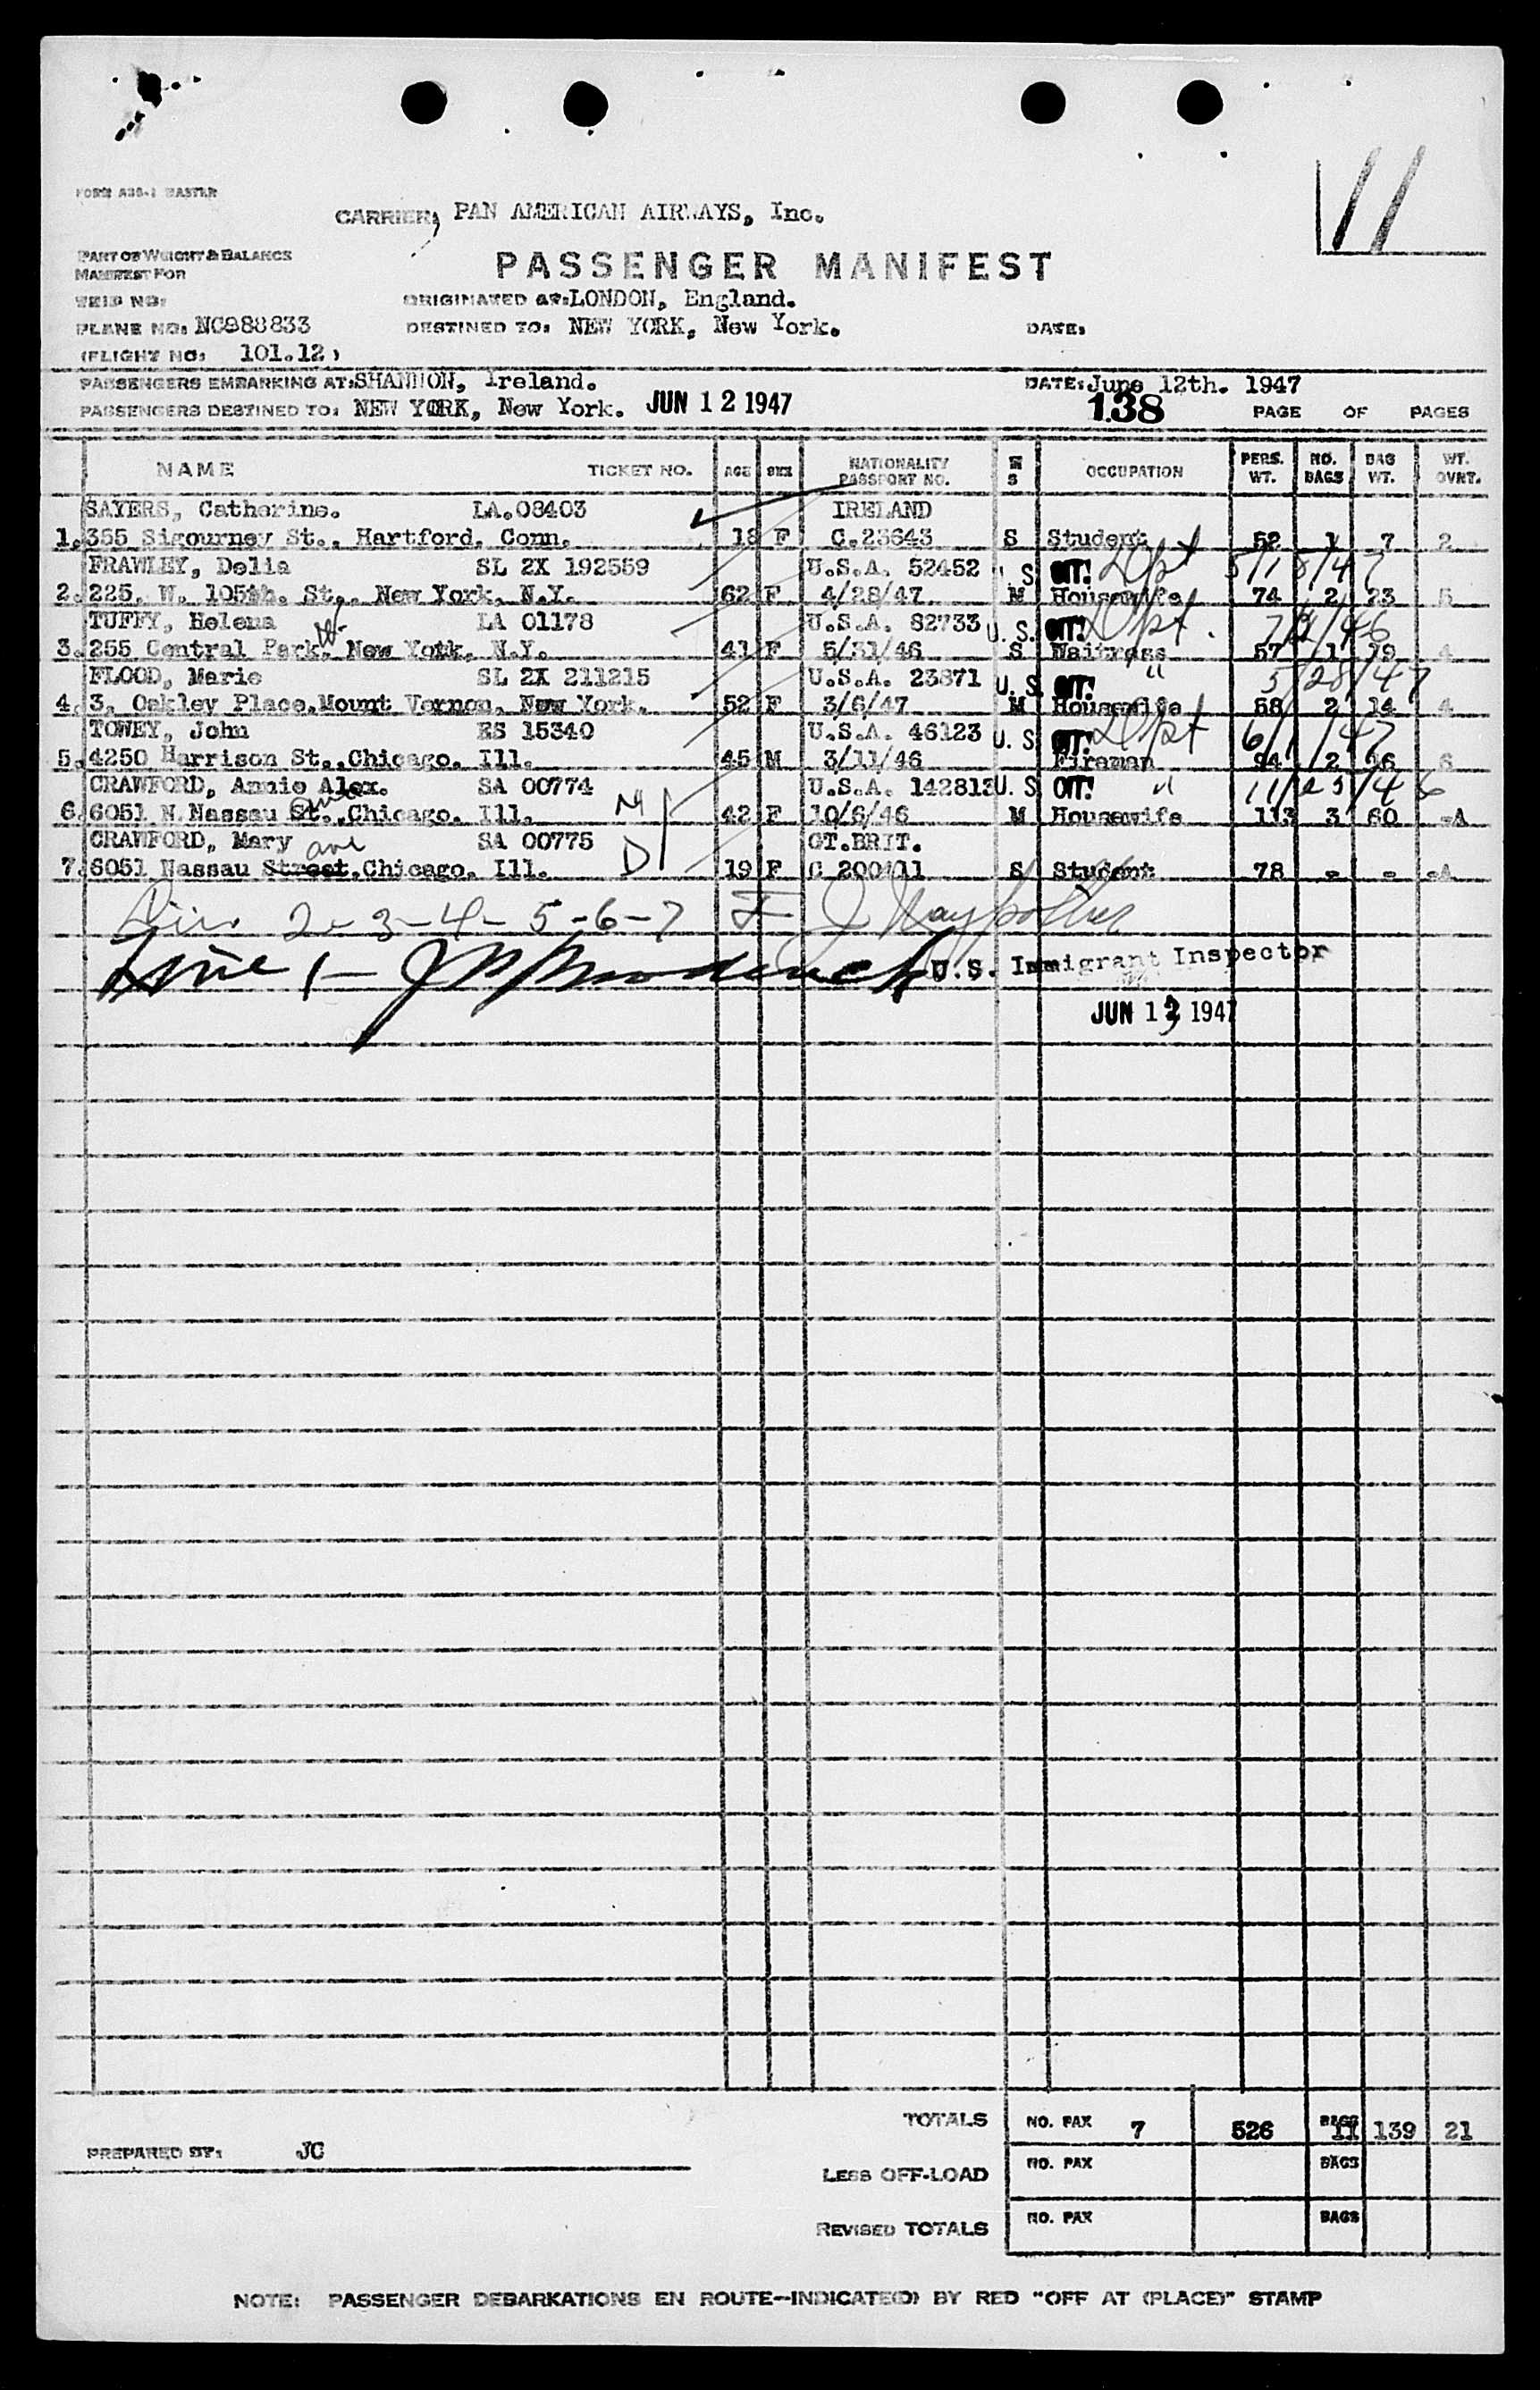 11
FORM AB6-1 MASTER
CARRIER, PAN AMERICAN AIRWAYS, Inc.
PART OF WEIGHT & BALANCE
MANIFEST FOR
PASSENGER MANIFEST
TRIP NO:
ORIGINATED AT: LONDON, England.
PLANE NO: NC888833
DESTINED TO: NEW YORK, New York.
DATE:
(FLIGHT NO: 101.12)
PASSENGERS EMBARKING AT: SHANNON, Ireland.
DATE: June 12th. 1947
PASSENGERS DESTINED TO: NEW YORK, New York. JUN 12 1947
138 PAGE OF PAGES
NAME TICKET NO. AGE SEX NATIONALITY PASSPORT NO. M S OCCUPATION PERS. WT. NO. BAGS BAG WT. WT. OVRT.
SAYERS, Catherine. LA.08403 IRELAND
1. 355 Sigourney St., Hartford, Conn. 18 F C.23643 S Student 52 1 7 2
FRAWLEY, Delia SL 2X 192559 U.S.A. 52452 U.S. CIT! Dept 5/18/47
2. 225, W. 105th. St., New York, N.Y. 62 F 4/28/47 M Housewife 74 2 23 5
TUFFY, Helena LA 01178 U.S.A. 82733 U.S. CIT! Dept.
3. 255 Central Park, W. New York, N.Y. 41 F 5/31/46 S Waitress 57 1 19 4
FLOOD, Marie SL 2X 211215 U.S.A. 23871 U.S. CIT! " 5/28/47
4. 3, Oakley Place, Mount Vernon, New York. 52 F 3/6/47 M Housewife 58 2 14 4
TOWEY, John RS 15340 U.S.A. 46123 U.S. CIT! Dept 6/1/47
5. 4250 Harrison St., Chicago, Ill. 45 M 3/11/46 Fireman 94 2 16 6
CRAWFORD, Annie Alex. SA 00774 U.S.A. 142813 U.S. CIT! " 11/25/46
6. 6051 N. Nassau St., Ave Chicago, Ill. M 42 F 10/6/46 M Housewife 113 3 60 -A
CRAWFORD, Mary SA 00775 GT.BRIT.
7. 6051 Nassau Street, ave Chicago, Ill. D 19 F C 200411 S Student 78 - - -A
2-3-4-5-6-7
Line 1 -
U.S. Immigrant Inspector
JUN 13 1947
TOTALS NO. PAX 7 526 BAGS 11 139 21
PREPARED BY: JC
LESS OFF-LOAD NO. PAX BAGS
REVISED TOTALS NO. PAX BAGS
NOTE: PASSENGER DEBARKATIONS EN ROUTE—INDICATE(D) BY RED "OFF AT (PLACE)" STAMP